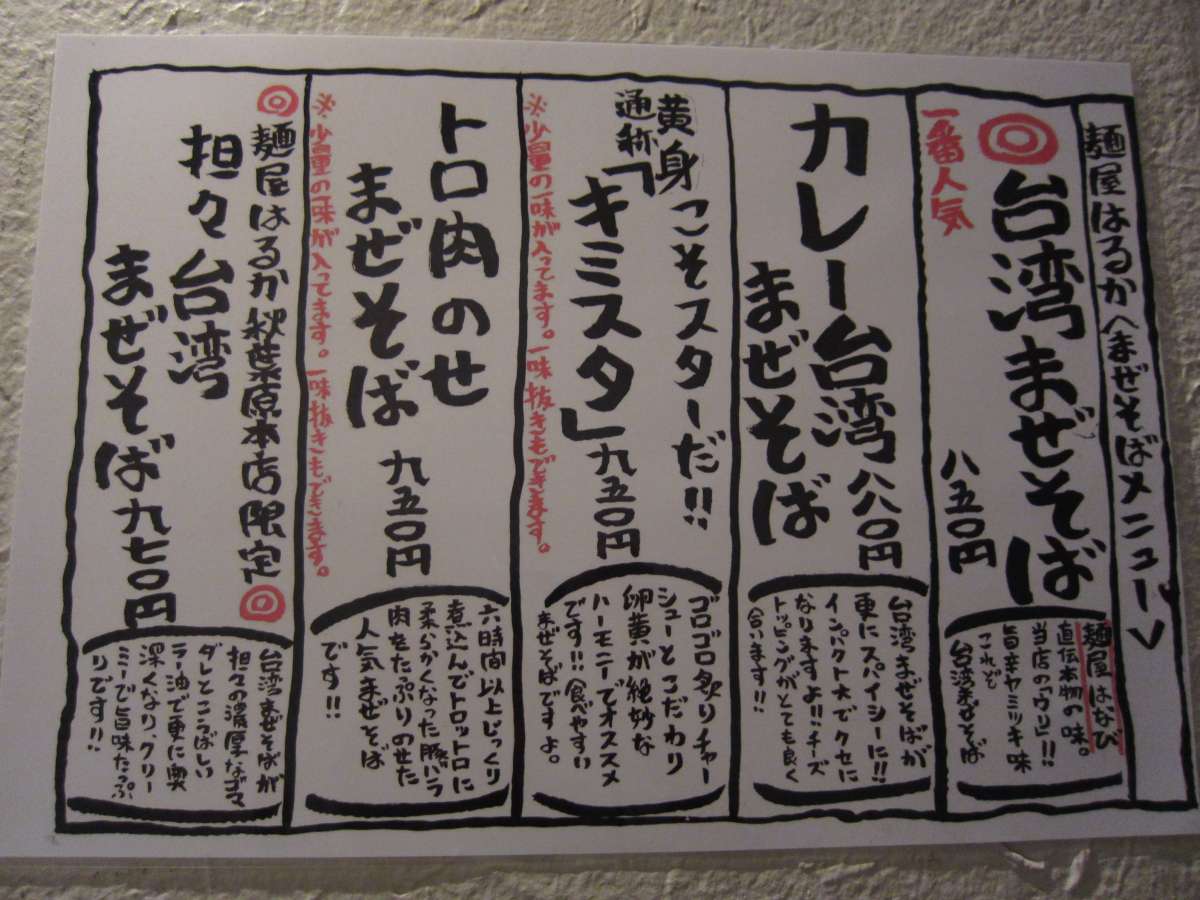 麺屋はるか〈まぜそばメニュー〉
◎台湾まぜそば
一番人気
八五〇円
麺屋はなび
直伝本物の味。
当店の「ウリ」!!
旨辛ヤミツキ味
これぞ
台湾まぜそば
カレー台湾
まぜそば
八八〇円
台湾まぜそばが
更にスパイシーに!!
インパクト大でクセに
なりますよ!!チーズ
トッピングがとても良く
合います!!
黄身こそスターだ!!
通称「キミスタ」
九五〇円
※少量の一味が入ってます。一味抜きもできます。
ゴロゴロ炙りチャー
シューとこだわり
卵黄が絶妙な
ハーモニーでオススメ
です!!食べやすい
まぜそばですよ。
トロ肉のせ
まぜそば
九五〇円
※少量の一味が入ってます。一味抜きもできます。
六時間以上じっくり
煮込んでトロットロに
柔らかくなった豚バラ
肉をたっぷりのせた
人気まぜそば
です!!
◎麺屋はるか秋葉原本店限定◎
担々台湾
まぜそば九七〇円
台湾まぜそばが
担々の濃厚なゴマ
ダレとこうばしい
ラー油で更に奥
深くなりクリー
ミーで旨味たっぷ
りです!!